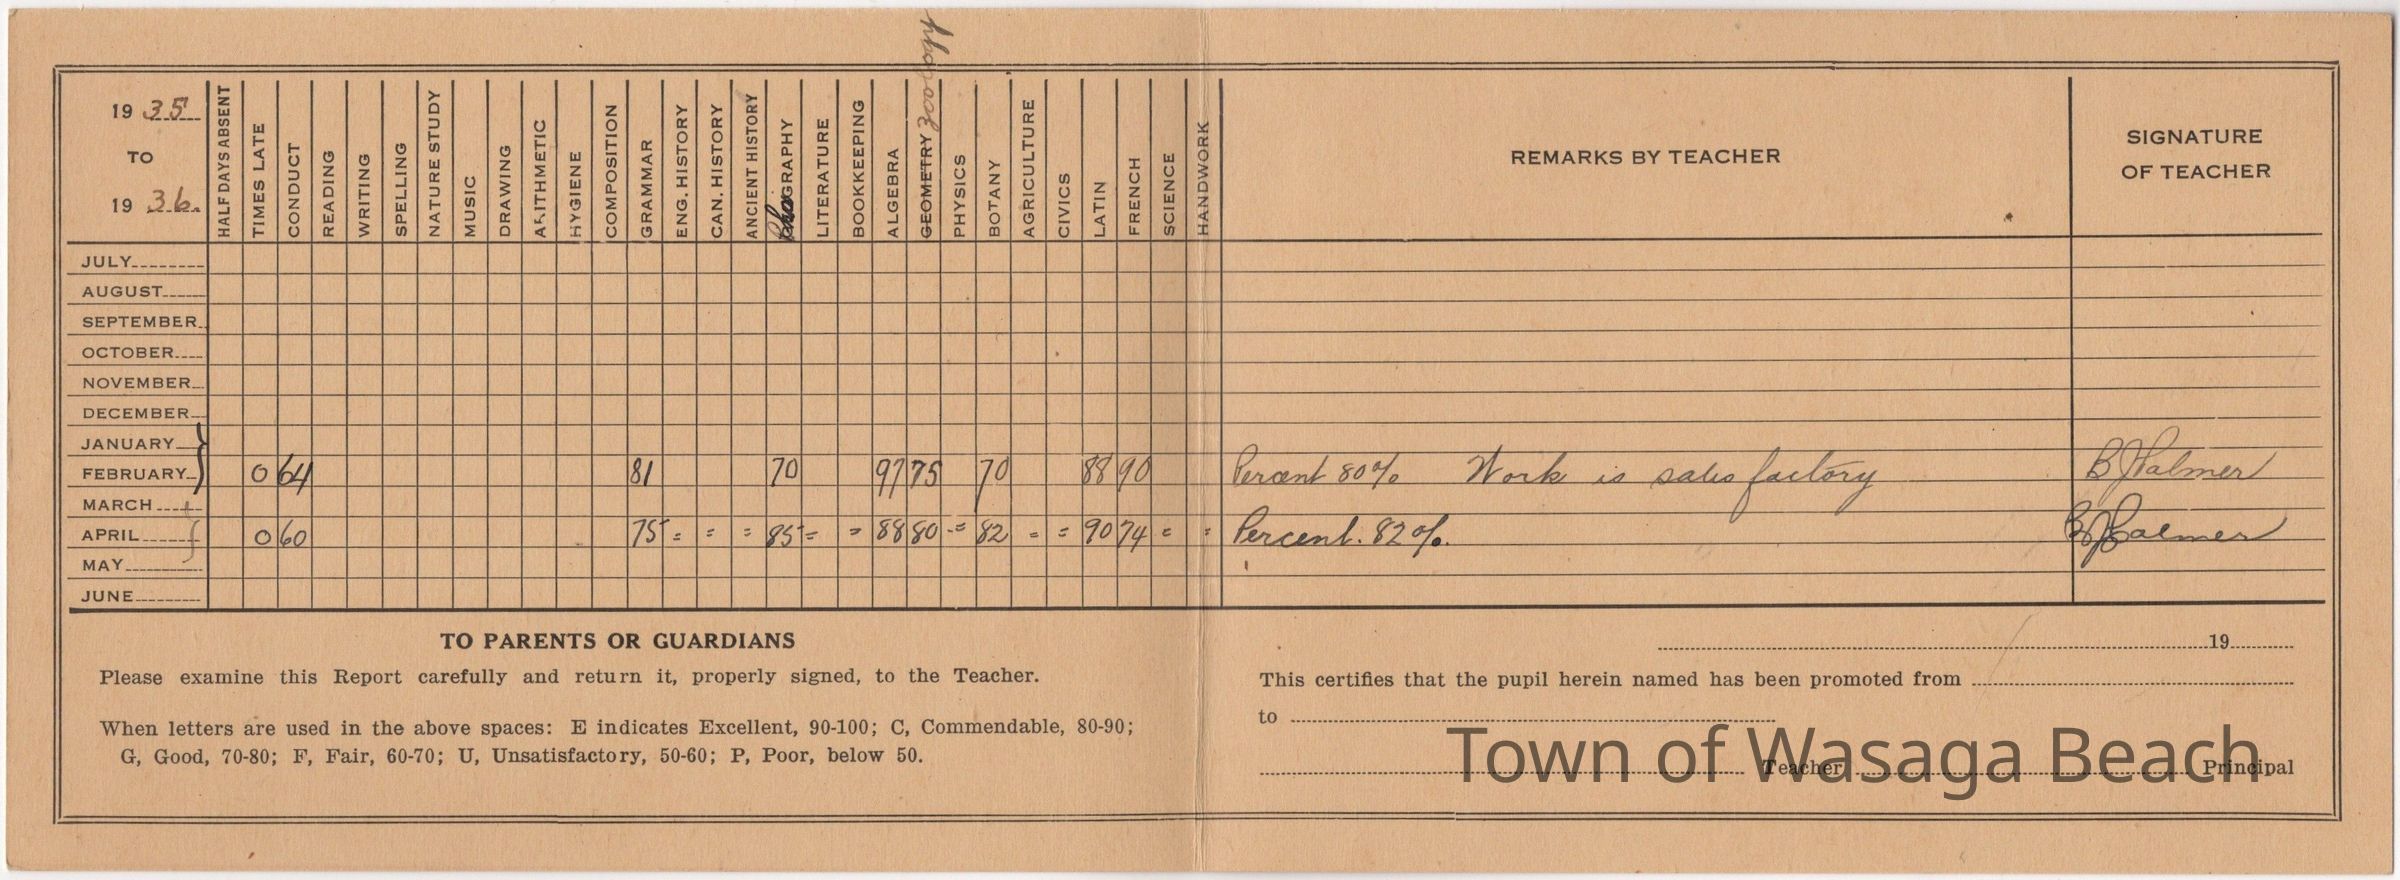 Zoology
19 35
TO
19 36.
HALF DAYS ABSENT
TIMES LATE
CONDUCT
READING
WRITING
SPELLING
NATURE STUDY
MUSIC
DRAWING
ARITHMETIC
HYGIENE
COMPOSITION
GRAMMAR
ENG. HISTORY
CAN. HISTORY
ANCIENT HISTORY
GRAPHY
LITERATURE
BOOKKEEPING
ALGEBRA
GEOMETRY
PHYSICS
BOTANY
AGRICULTURE
CIVICS
LATIN
FRENCH
SCIENCE
HANDWORK
REMARKS BY TEACHER
SIGNATURE
OF TEACHER
JULY
AUGUST
SEPTEMBER
OCTOBER
NOVEMBER
DECEMBER
JANUARY
FEBRUARY 0 64 81 70 97 75 70 88 90 Percent 80% Work is satisfactory B J Palmer
MARCH
APRIL 0 60 75 = = = 85 = = 88 80 = 82 = = 90 74 = = Percent. 82%. B J Palmer
MAY
JUNE
TO PARENTS OR GUARDIANS
Please examine this Report carefully and return it, properly signed, to the Teacher.
When letters are used in the above spaces: E indicates Excellent, 90-100; C, Commendable, 80-90;
G, Good, 70-80; F, Fair, 60-70; U, Unsatisfactory, 50-60; P, Poor, below 50.
19
This certifies that the pupil herein named has been promoted from
to
Teacher Principal
Town of Wasaga Beach